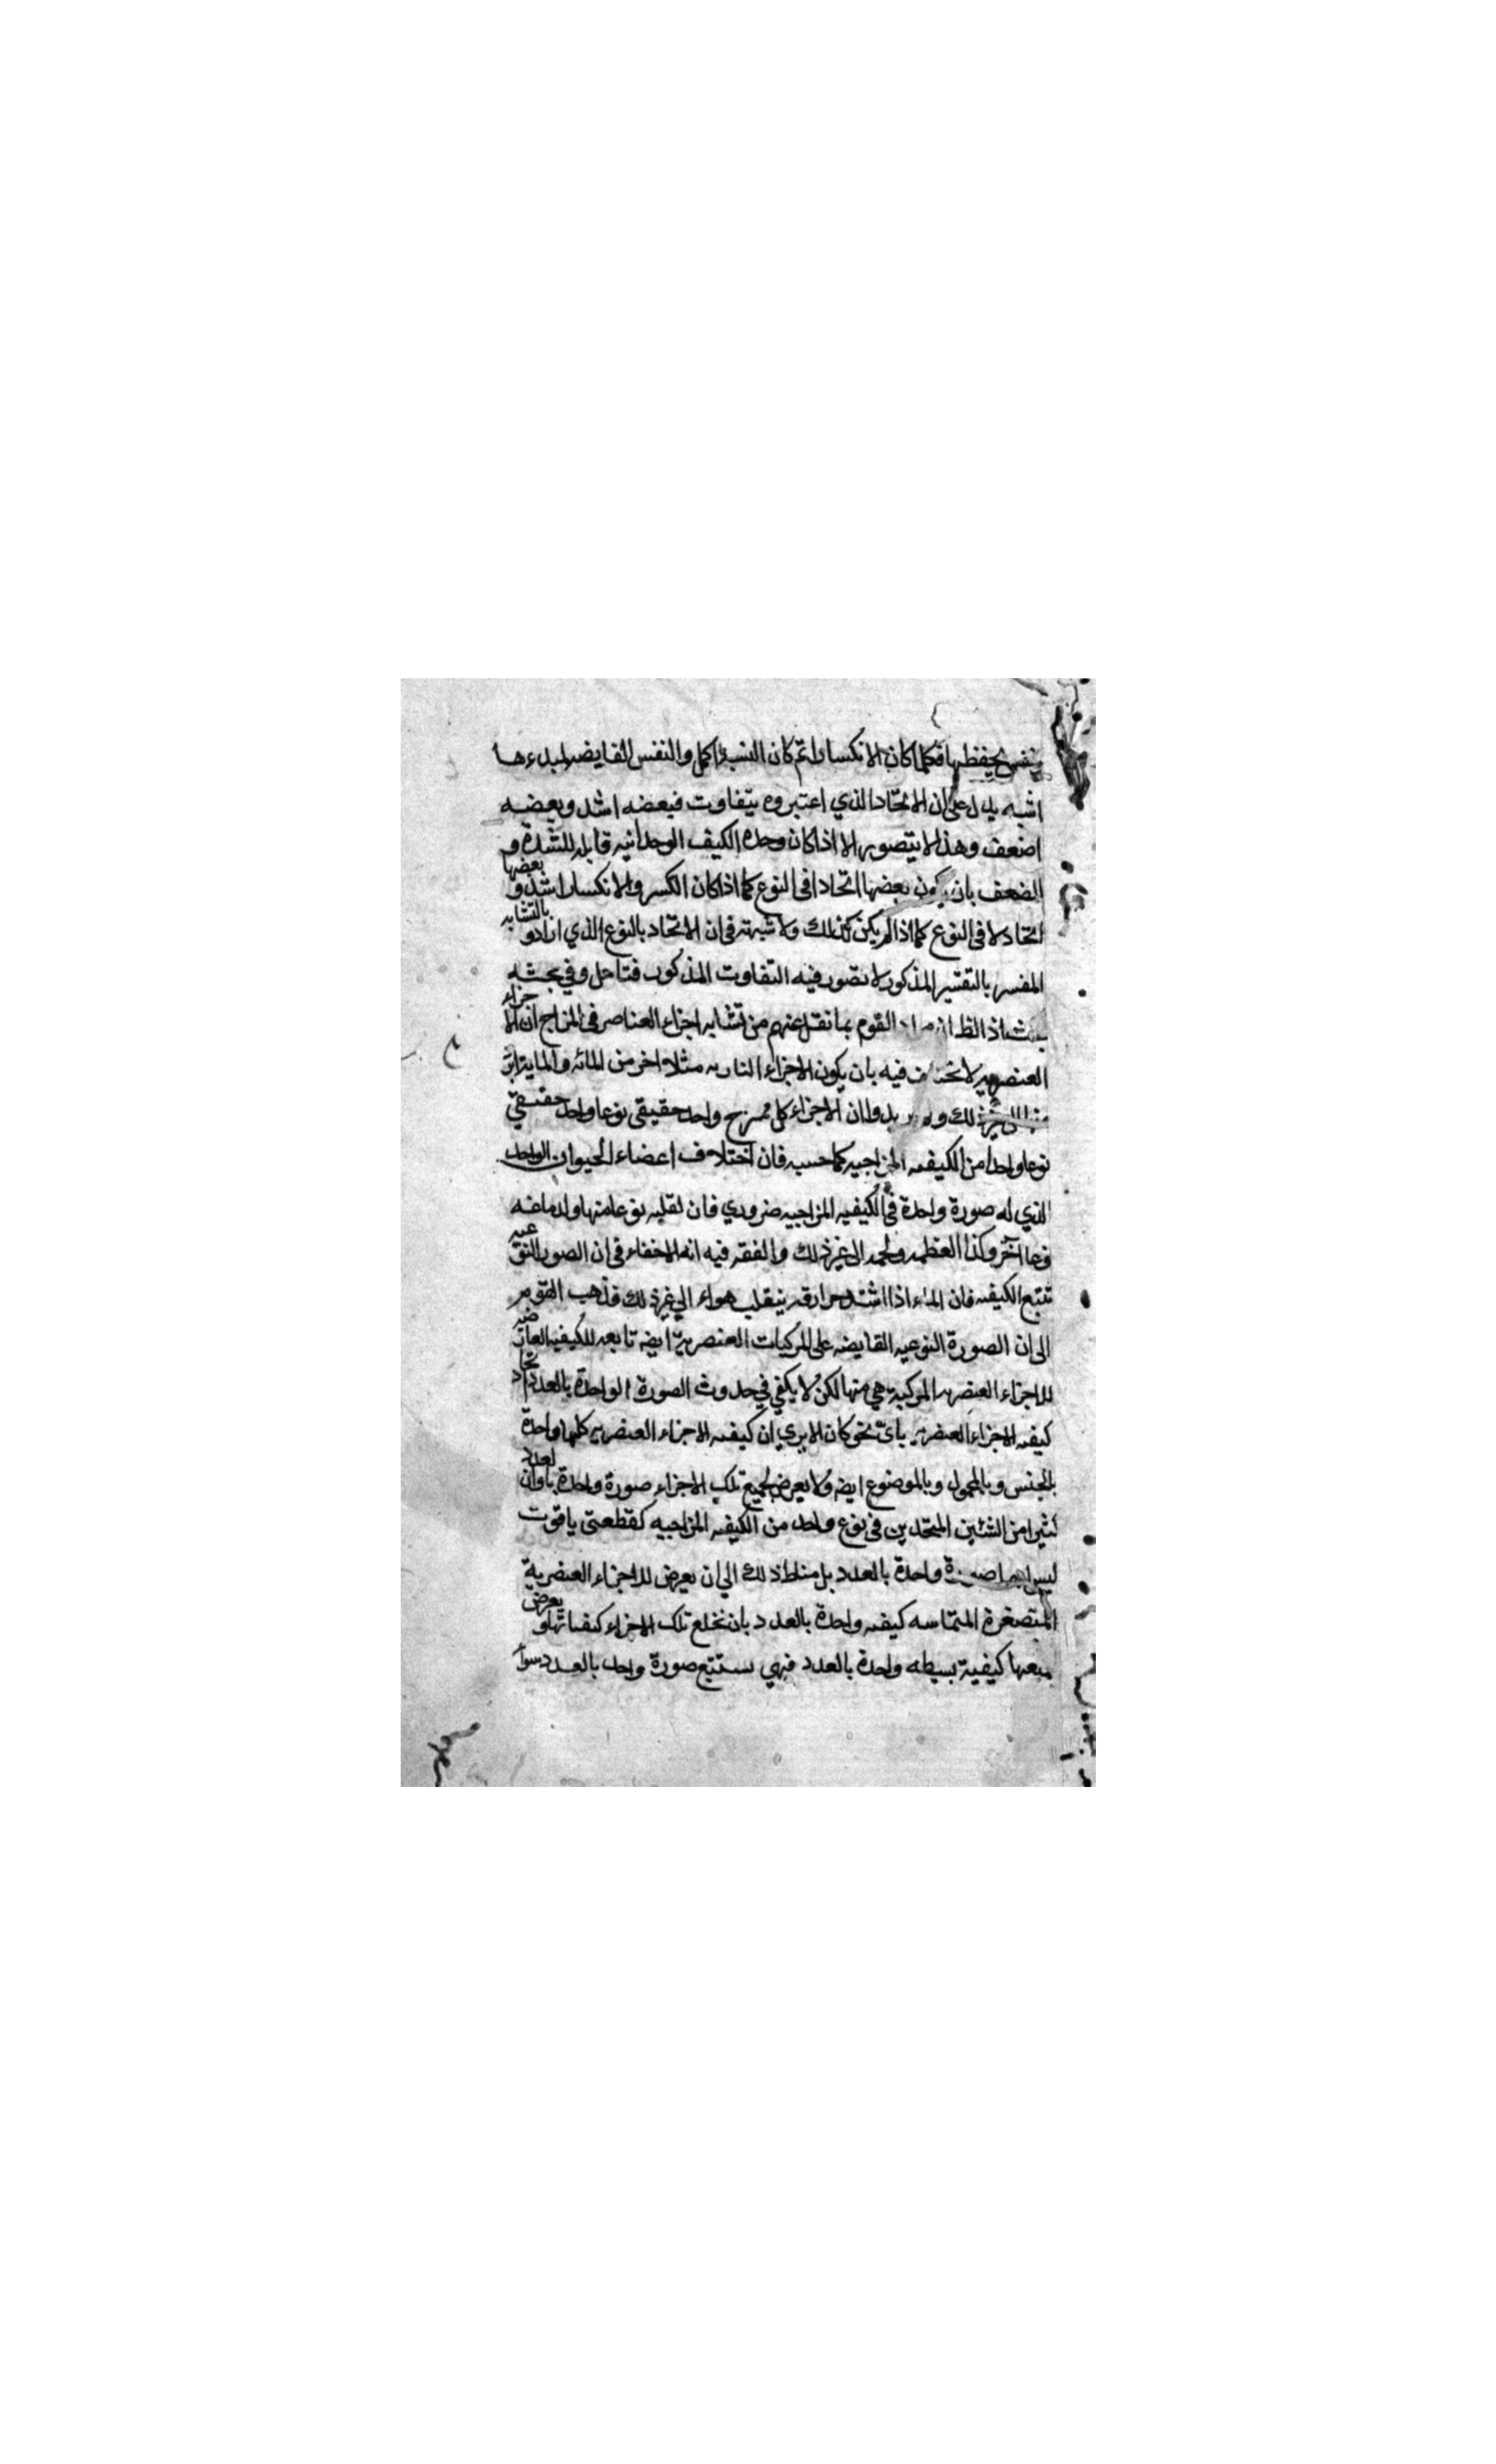 يحفظها فكلما كان الانكسار اتم كان النسبة اكمل والنفس الفايضه لمبدءها
اشبه يدل على ان الاتحاد الذي اعتبروه يتفاوت فبعضه اشد وبعضه
اضعف وهذا لا يتصور الا اذا كان وحدة الكيف الوحدانيه قابله للشدة و
الضعف بان يكون بعضها اتحادا في النوع كما اذا كان الكسر والانكسار اشد و بعضها
اتحاد لا في النوع كما اذا لم يكن كذلك ولا شبهة في ان الاتحاد بالنوع الذي ارادو بالتشابه
المفسر بالتفسير المذكور لا تصور فيه التفاوت المذكور فتامل وفي بحثه
بحث اذ الظ ان مراد القوم بما نقل عنهم من تشابه اجزاء العناصر في المزاج ان الا جزاء
العنصريه لا تختلف فيه بان يكون الاجزاء الناريه مثلا اخر من المائه والمايته ابر
غير ذلك و يدوا ان الاجزاء كل ممزج واحد حقيقي نوعا واحد حقيقي
نوعا واحدا من الكيفيه المزاجيه كما حسبه فان اختلاف اعضاء الحيوان الواحد
الذي له صورة واحدة في الكيفيه المزاجيه ضروري فان لقلبه نوعا منها ولدماغه
نوعا آخر وكذا العظمه ولحمه الى غير ذلك والفقه فيه انه لا خفاء في ان الصور النو عيه
تتبع الكيفيه فان الماء اذا اشتد حرارته ينقلب هواء الي غير ذلك فذهب القوم
الى ان الصورة النوعيه الفايضه على المركبات العنصرية ايضه تابعه للكيفيه العار ضه
للاجزاء العنصريه المركبة هي منها لكن لا يكفي في حدوث الصورة الواحدة بالعدد اتحاد
كيفيه الاجزاء العنصريه باي نحو كان الا يري ان كيفيه الاجزاء العنصريه كلها واحدة
بالجنس وبالمحمول وبالموضوع ايضه ولا يعرض لجميع تلك الاجزاء صورة واحدة با لعدد وان
كثيرا من الشيئين المتحدين في نوع واحد من الكيفيه المزاجيه كقطعتي ياقوت
ليس لهما صورة واحدة بالعدد بل مناط ذلك الي ان يعرض للاجزاء العنصرية
المتصغرة المتماسه كيفيه واحدة بالعدد بان تخلع تلك الاجزاء كيفياتها و يعرض
جميعها كيفية بسيطه واحدة بالعدد فهي ستتبع صورة واحد بالعدد سواء